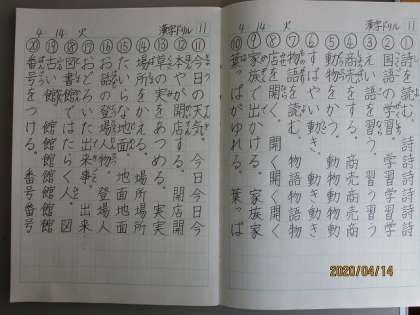 4.14. 火 漢字ドリル 11
①詩を読む。詩詩詩詩
②国語の学習。学習学
③えい語を習う。習う習う
④商売をする。商売商売
⑤動物をかう。動物動物
⑥すばやい動き。動き動き
⑦物語を読む。物語物語
⑧店を開く。開く開く開く
⑨家族で出かける。家族家
⑩葉っぱがゆれる。葉っぱ
4.14. 火 漢字ドリル 11
⑪今日の天気。今日今日今
⑫本やが開店する。開店開
⑬草の実をあつめる。実実
⑭場所をかえる。場所場所
⑮たいらな地面。地面地面
⑯お話の登場人物。登場人
⑰おどろいた出来事。出来
⑱図書館ではたらく人。図
⑲古い館。館館館館館館
⑳番号をつける。番号番号
2020/04/14